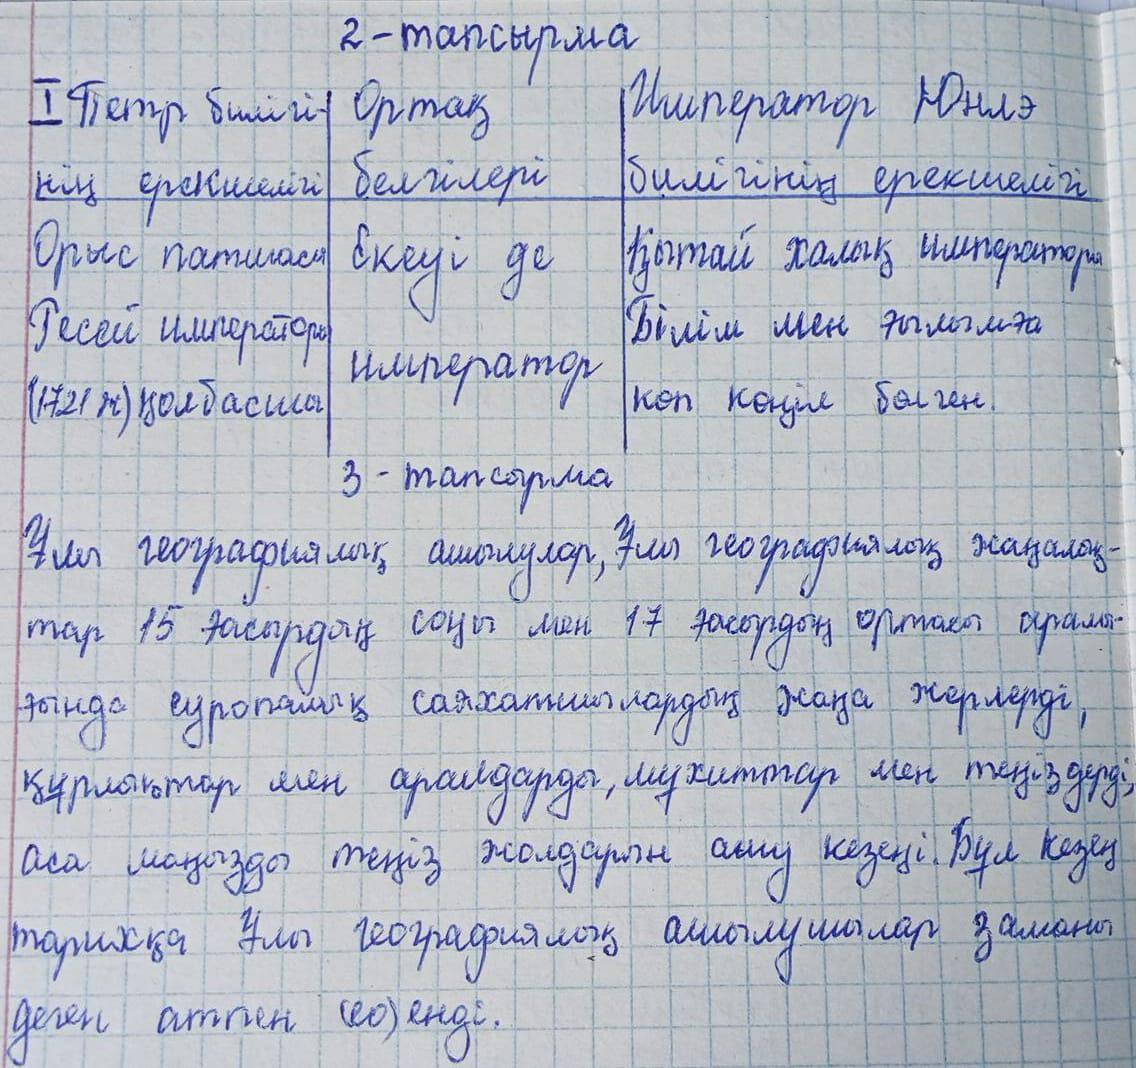 2-тапсырма
I Петр билігі- Ортақ Император Юнлэ
нің ерекшелігі белгілері билігінің ерекшелігі
Орыс патшасы Екеуі де Қытай халық императоры
Ресей императоры Білім мен ғылымға
император
(1721 ж) қолбасшы көп көңіл бөлген.
3-тапсырма
Ұлы географиялық ашылулар, Ұлы географиялық жаңалық-
тар 15 ғасырдың соңы мен 17 ғасырдың ортасы аралы-
ғында еуропалық саяхатшылардың жаңа жерлерді,
құрлықтар мен аралдарды, мұхиттар мен теңіздерді,
аса маңызды теңіз жолдарын ашу кезеңі. Бұл кезең
тарихқа Ұлы географиялық ашылушылар заманы
деген атпен (ео) енді.